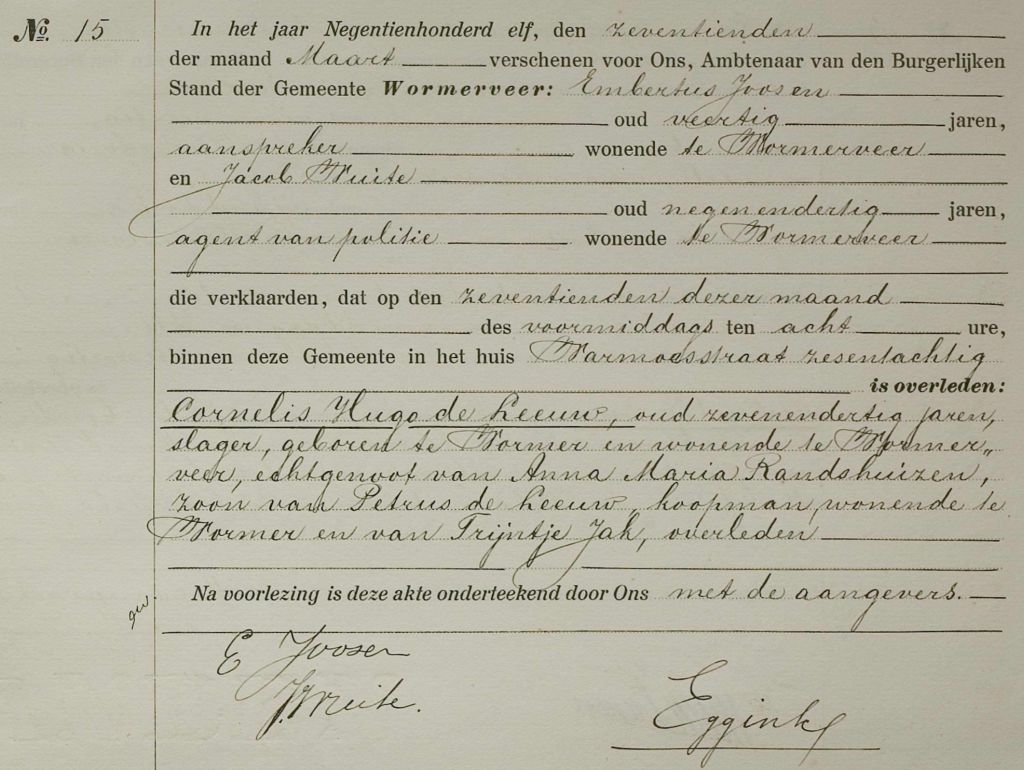 No. 15
In het jaar Negentienhonderd elf, den zeventienden
der maand Maart verschenen voor Ons, Ambtenaar van den Burgerlijken
Stand der Gemeente Wormerveer: Embertus Joosen
oud veertig jaren,
aanspreker wonende te Wormerveer
en Jacob Wuite
oud negenendertig jaren,
agent van politie wonende te Wormerveer
die verklaarden, dat op den zeventienden dezer maand
des voormiddags ten acht ure,
binnen deze Gemeente in het huis Warmoesstraat zesentachtig
is overleden:
Cornelis Hugo de Leeuw, oud zevenendertig jaren,
slager, geboren te Wormer en wonende te Wormer„
veer, echtgenoot van Anna Maria Randshuizen,
zoon van Petrus de Leeuw, koopman, wonende te
Wormer en van Trijntje Jak, overleden
Na voorlezing is deze akte onderteekend door Ons met de aangevers.
E Joosen
J. Wuite.
Eggink